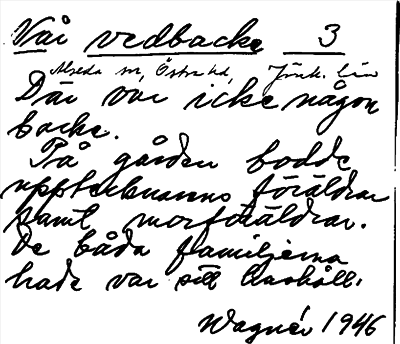 Vår vedbacke 3
Alseda sn, Östra hd, Jönk. län
Där var icke någon
backe.
På gården bodde
upptecknarens föräldrar
samt morföräldrar.
De båda familjerna
hade var sitt hushåll.
Wagnér 1946